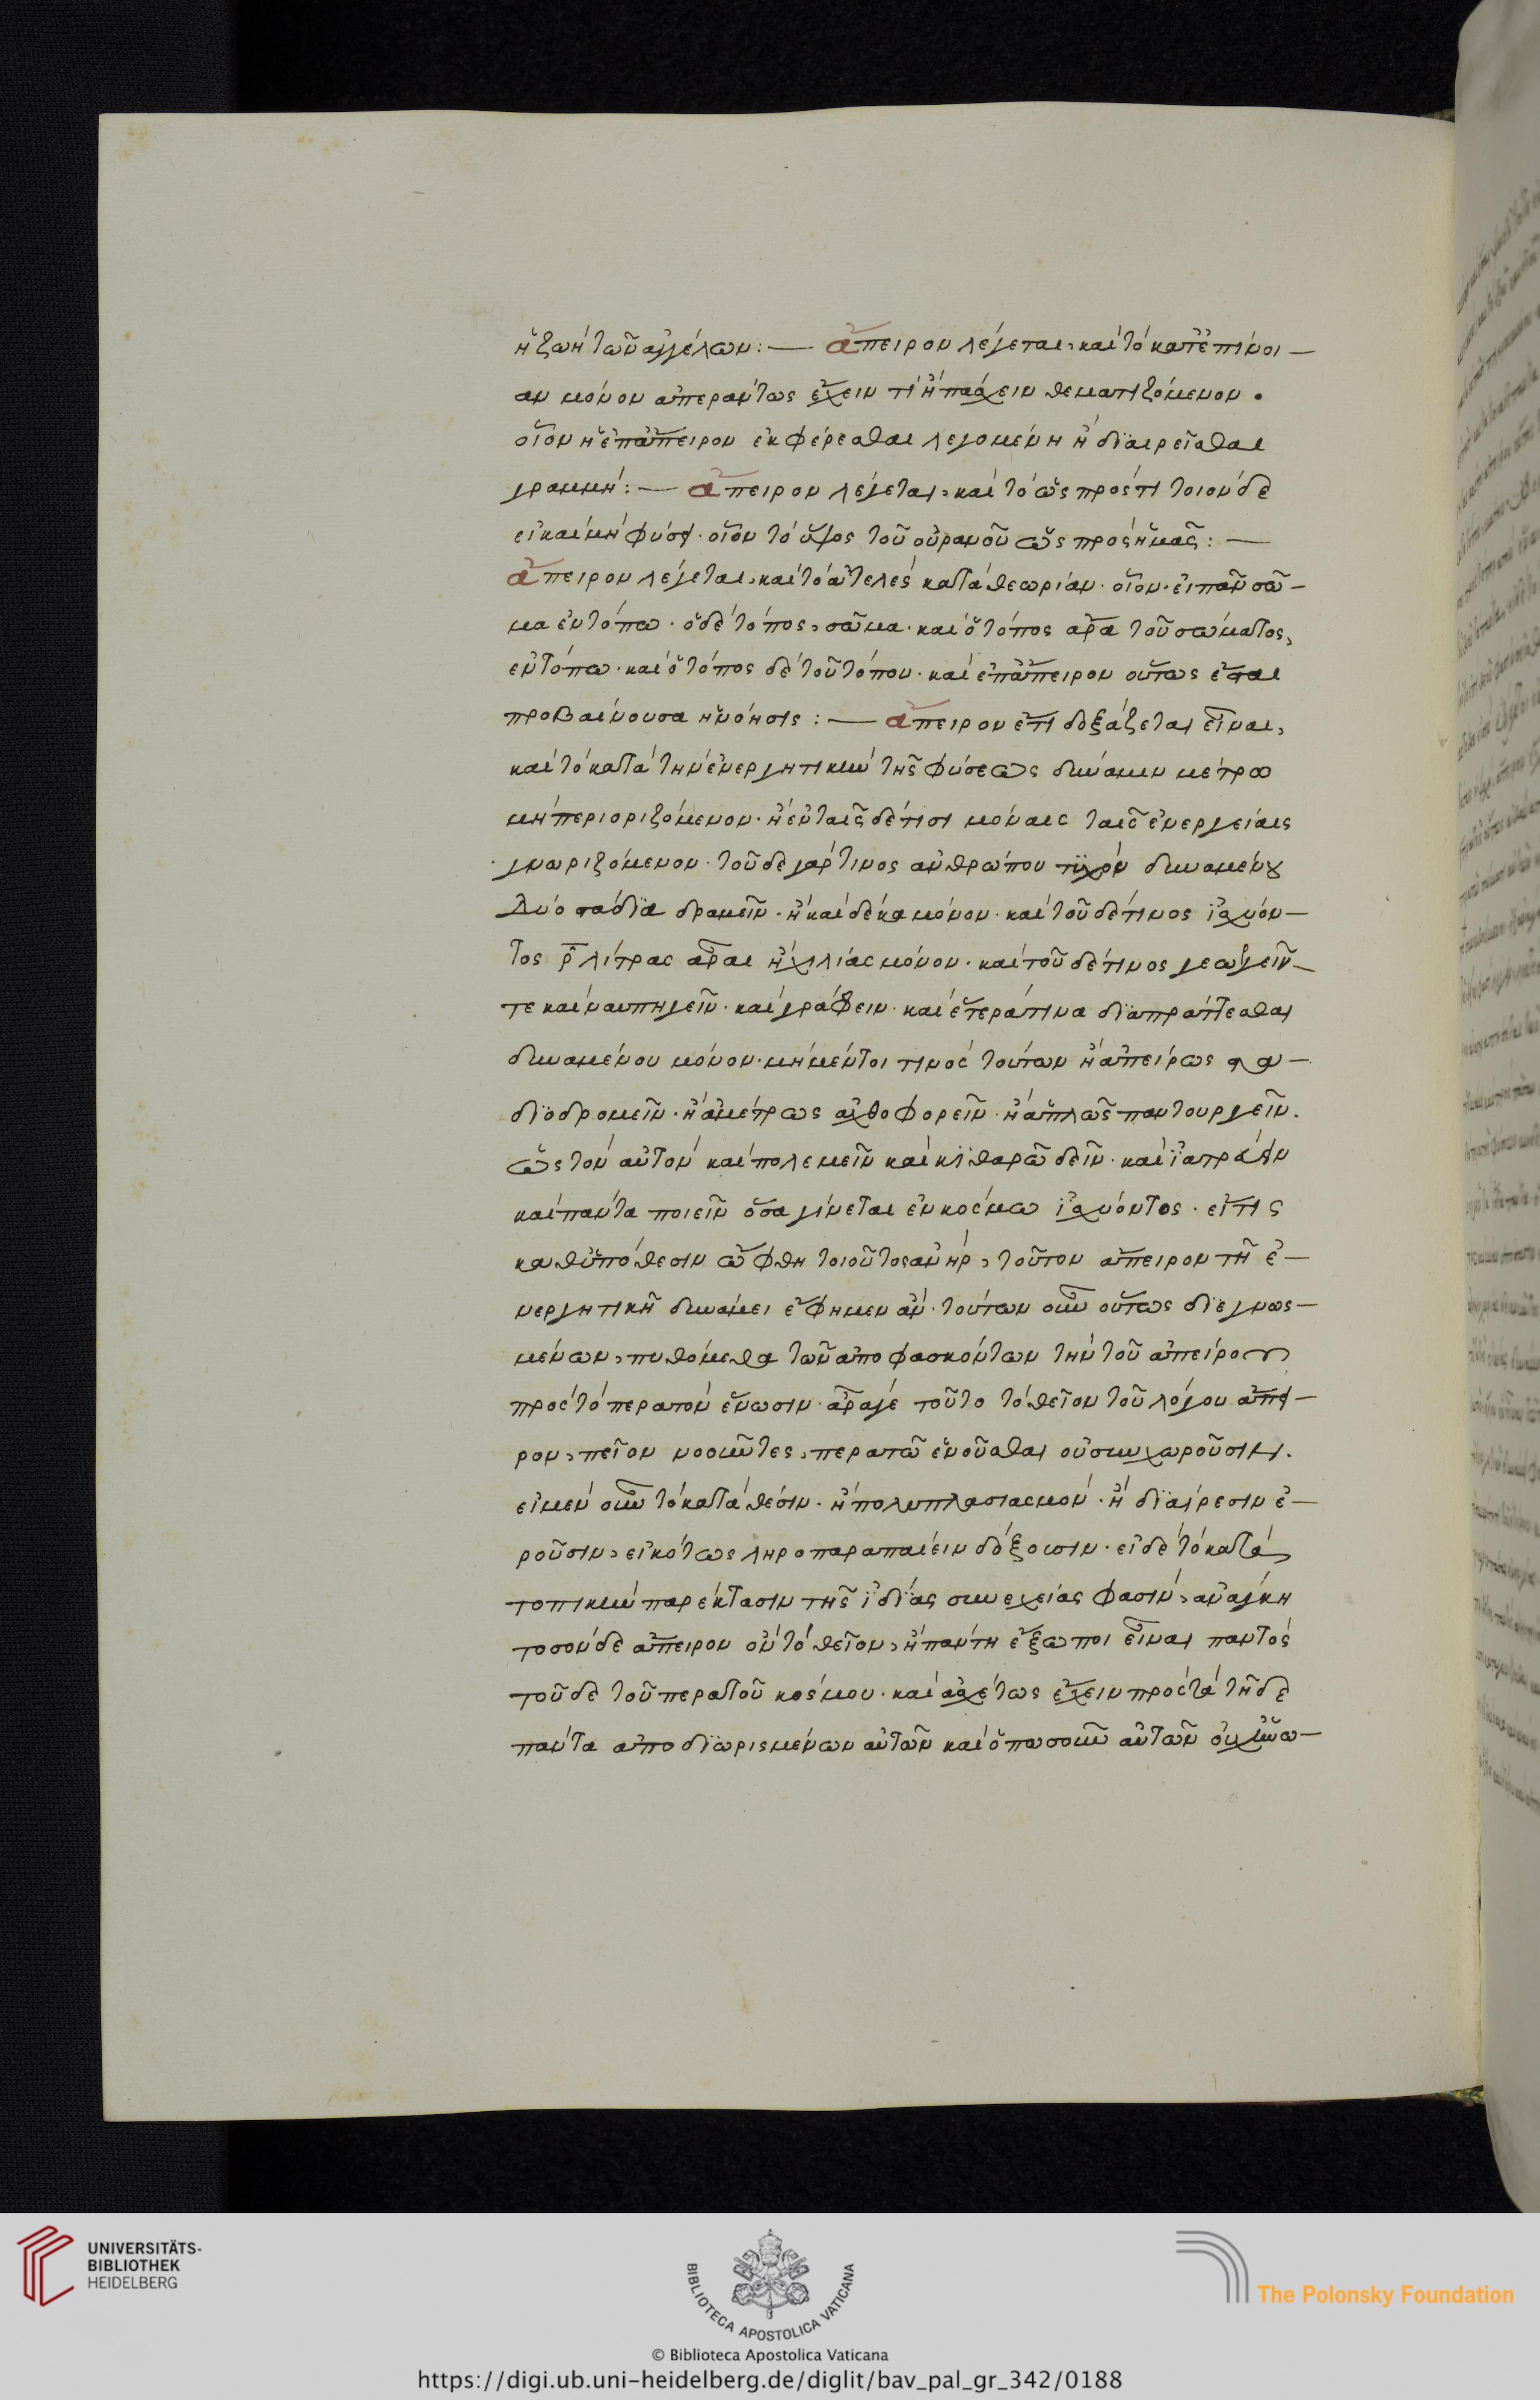 ἡ ζωὴ τῶν ἀγγέλων: — ἄπειρον λέγεται, καὶ τὸ κατ' ἐπίνοι—
αν μόνον ἀπεράντως ἔχειν τὶ ἢ πάσχειν θεματιζόμενον.
οἷον ἡ ἐπάπειρον ἐκφέρεσθαι λεγομένη ἢ διαιρεῖσθαι
γραμμή: — ἄπειρον λέγεται, καὶ τὸ ὡς πρός τι τοιόνδε
εἰ καὶ μὴ φύσει· οἷον τὸ ὕψος τοῦ οὐρανοῦ ὡς πρὸς ἡμᾶς: —
ἄπειρον λέγεται, καὶ τὸ ἀτελὲς κατὰ θεωρίαν· οἷον· εἰ πᾶν σῶ—
μα ἐν τόπω· ὁ δὲ τόπος, σῶμα· καὶ ὁ τόπος ἄρα τοῦ σώματος,
ἐν τόπω· καὶ ὁ τόπος δὲ τοῦ τόπου· καὶ ἐπάπειρον οὕτως ἔσται
προβαίνουσα ἡ νόησις: — ἄπειρον ἔτι δοξάζεται εἶναι,
καὶ τὸ κατὰ τὴν ἐνεργητικὴν τῆς φύσεως δύναμιν μέτρω
μὴ περιοριζόμενον· ἢ ἐν ταῖς δέ τισι μόναις ταῖς ἐνεργείαις
γνωριζόμενον· τοῦδε γάρ τινος ἀνθρώπου τυχὸν δυναμένου
δύο στάδια δραμεῖν· ἢ καὶ δέκα μόνον· καὶ τοῦδέ τινος ἰσχύον—
τος ρ λίτρας ἆραι ἢ χιλίας μόνον· καὶ τοῦ δέ τινος γεωργεῖν—
τε καὶ ναυπηγεῖν· καὶ γράφειν· καὶ ἕτερά τινα διαπράττεσθαι
δυναμένου μόνον· μὴ μέντοι τινὸς τούτων ἢ ἀπείρως στα—
διοδρομεῖν· ἢ ἀμέτρως ἀχθοφορεῖν· ἢ ἁπλῶς παντουργεῖν.
ὡς τὸν αὐτὸν καὶ πολεμεῖν καὶ κιθαρωδεῖν· καὶ ἰατρεύειν
καὶ πάντα ποιεῖν ὅσα γίνεται ἐν κόσμω ἰσχύοντος· εἴ τις
καθ' ὑπόθεσιν ὤφθη τοιοῦτος ἀνήρ, τοῦτον ἄπειρον τῆ ἐ—
νεργητικῆ δυνάμει ἔφημεν ἄν· τούτων οὖν οὕτως διεγνως—
μένων, πυθόμεθα τῶν ἀποφασκόντων τὴν τοῦ ἀπείρου
πρὸς τὸ περατὸν ἕνωσιν· ἆρά γε τοῦτο τὸ θεῖον τοῦ λόγου ἄπει—
ρον, ποῖον νοοῦντες, περατῶ ἑνοῦσθαι οὐ συγχωροῦσιν.
εἰ μὲν οὖν τὸ κατὰ θέσιν· ἢ πολυπλασιασμὸν· ἢ διαίρεσιν ἐ—
ροῦσιν, εἰκότως ληροπαραπαίειν δόξωσιν· εἰ δὲ τὸ κατὰ
τοπικὴν παρέκτασιν τῆς ἰδίας συνεχείας φασὶν, ἀνάγκη
τοσόνδε ἄπειρον ὂν τὸ θεῖον, ἢ πάντη ἔξω ποι εἶναι παντὸς
τοῦδε τοῦ περατοῦ κόσμου· καὶ ἀσχέτως ἔχειν πρὸς τὰ τῆδε
πάντα ἀποδιωρισμένων αὐτῶν καὶ ὁπωσοῦν αὐτῶν οὐχ
UNIVERSITÄTS-
BIBLIOTHEK
HEIDELBERG
BIBLIOTECA APOSTOLICA VATICANA
The Polonsky Foundation
© Biblioteca Apostolica Vaticana
https://digi.ub.uni-heidelberg.de/diglit/bav_pal_gr_342/0188